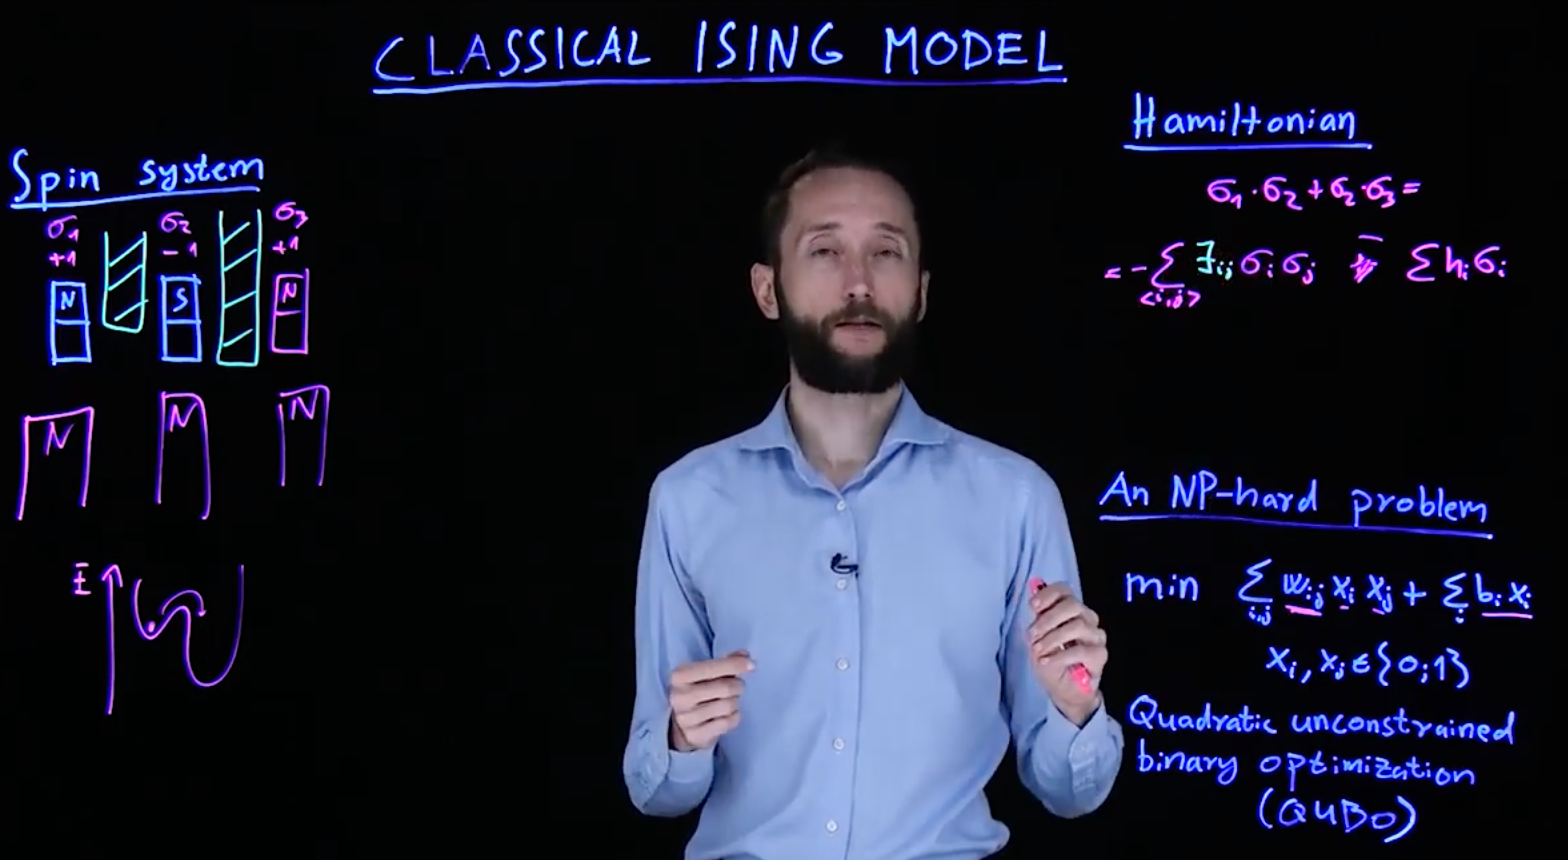 CLASSICAL ISING MODEL
Spin system
σ1 σ2 σ3
+1 -1 +1
N S N
N N N
E
Hamiltonian
σ1·σ2+σ2·σ3=
=-∑ Jij σi σj - ∑ hi σi
<i,j>
An NP-hard problem
min ∑ wij xi xj + ∑ bi xi
i,j i
xi, xj ∈ {0;1}
Quadratic unconstrained
binary optimization
(QUBO)